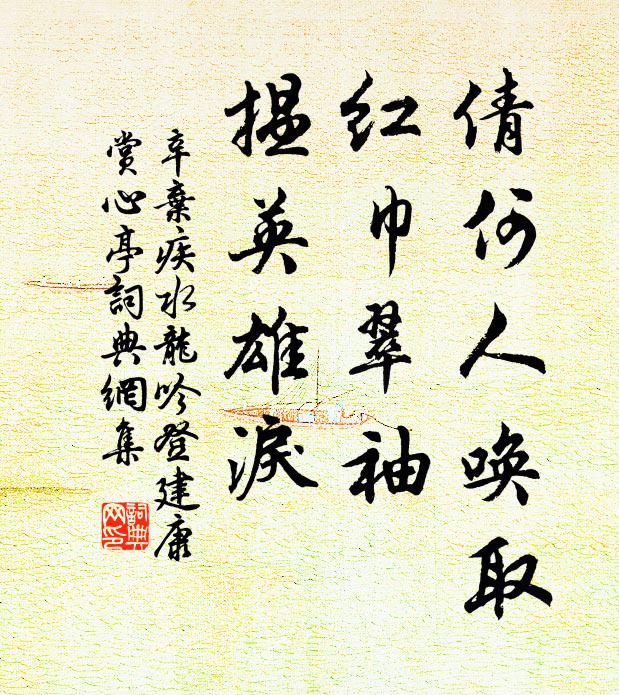 倩何人唤取
红巾翠袖
揾英雄淚
辛棄疾水龍吟登建康
賞心亭詞典網集
詞典
网印